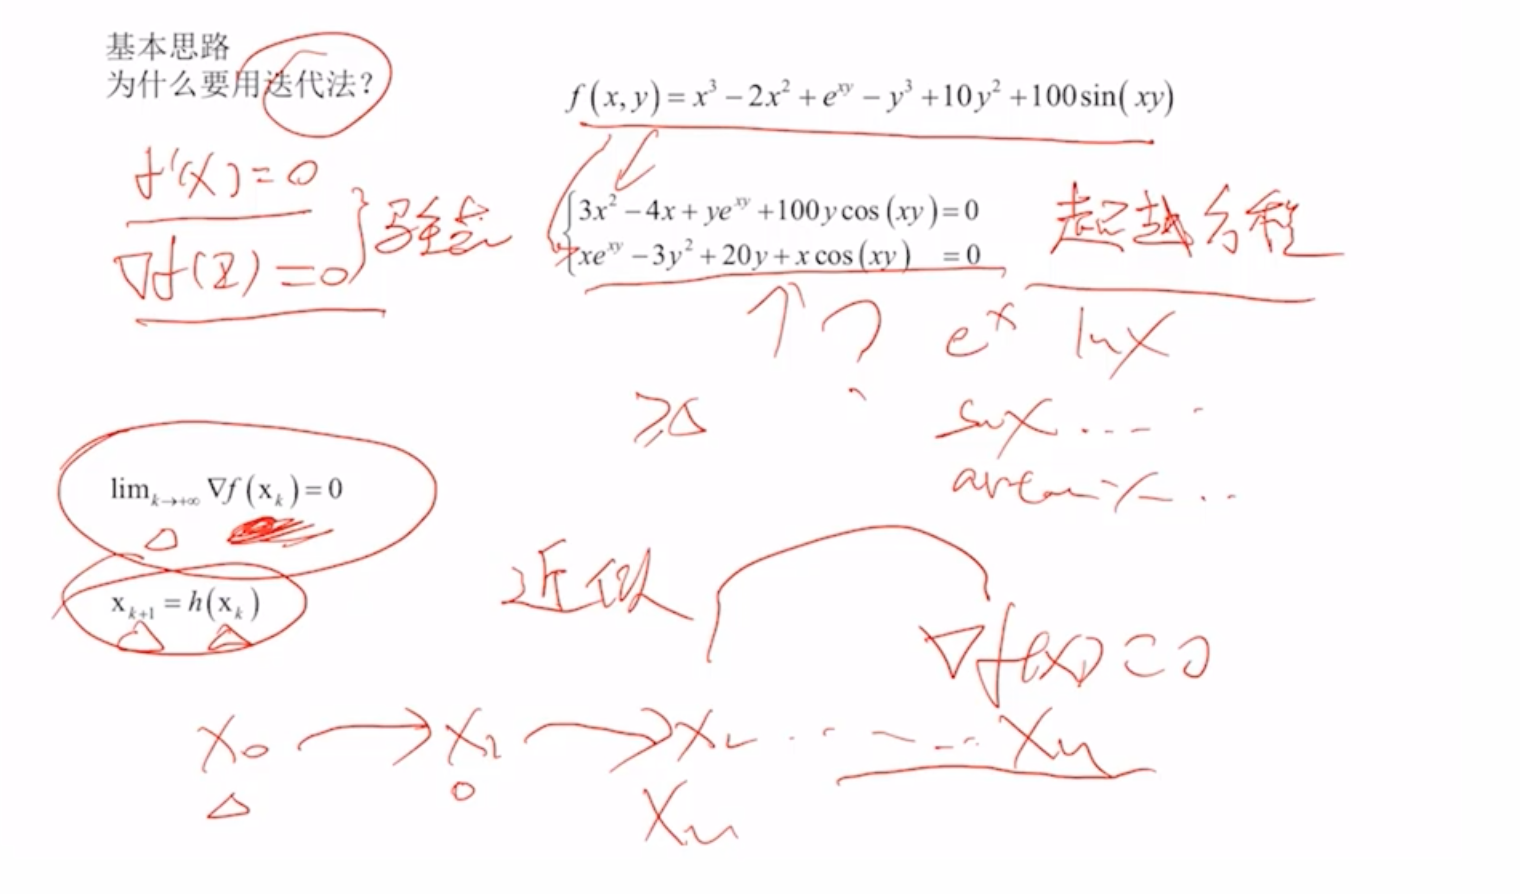 基本思路
为什么要用迭代法?
f(x,y)=x³−2x²+e^{xy}−y³+10y²+100sin(xy)
f'(x)=0
∇f(x)=0
驻点
3x²−4x+ye^{xy}+100ycos(xy)=0
xe^{xy}−3y²+20y+xcos(xy)=0
超越方程
?
e^x lnx
sinx ...
arctanx ..
lim_{k→+∞} ∇f(x_k)=0
x_{k+1}=h(x_k)
近似
∇f(x)=0
x₀ → x₁ → x₂ ... xₙ
xₙ